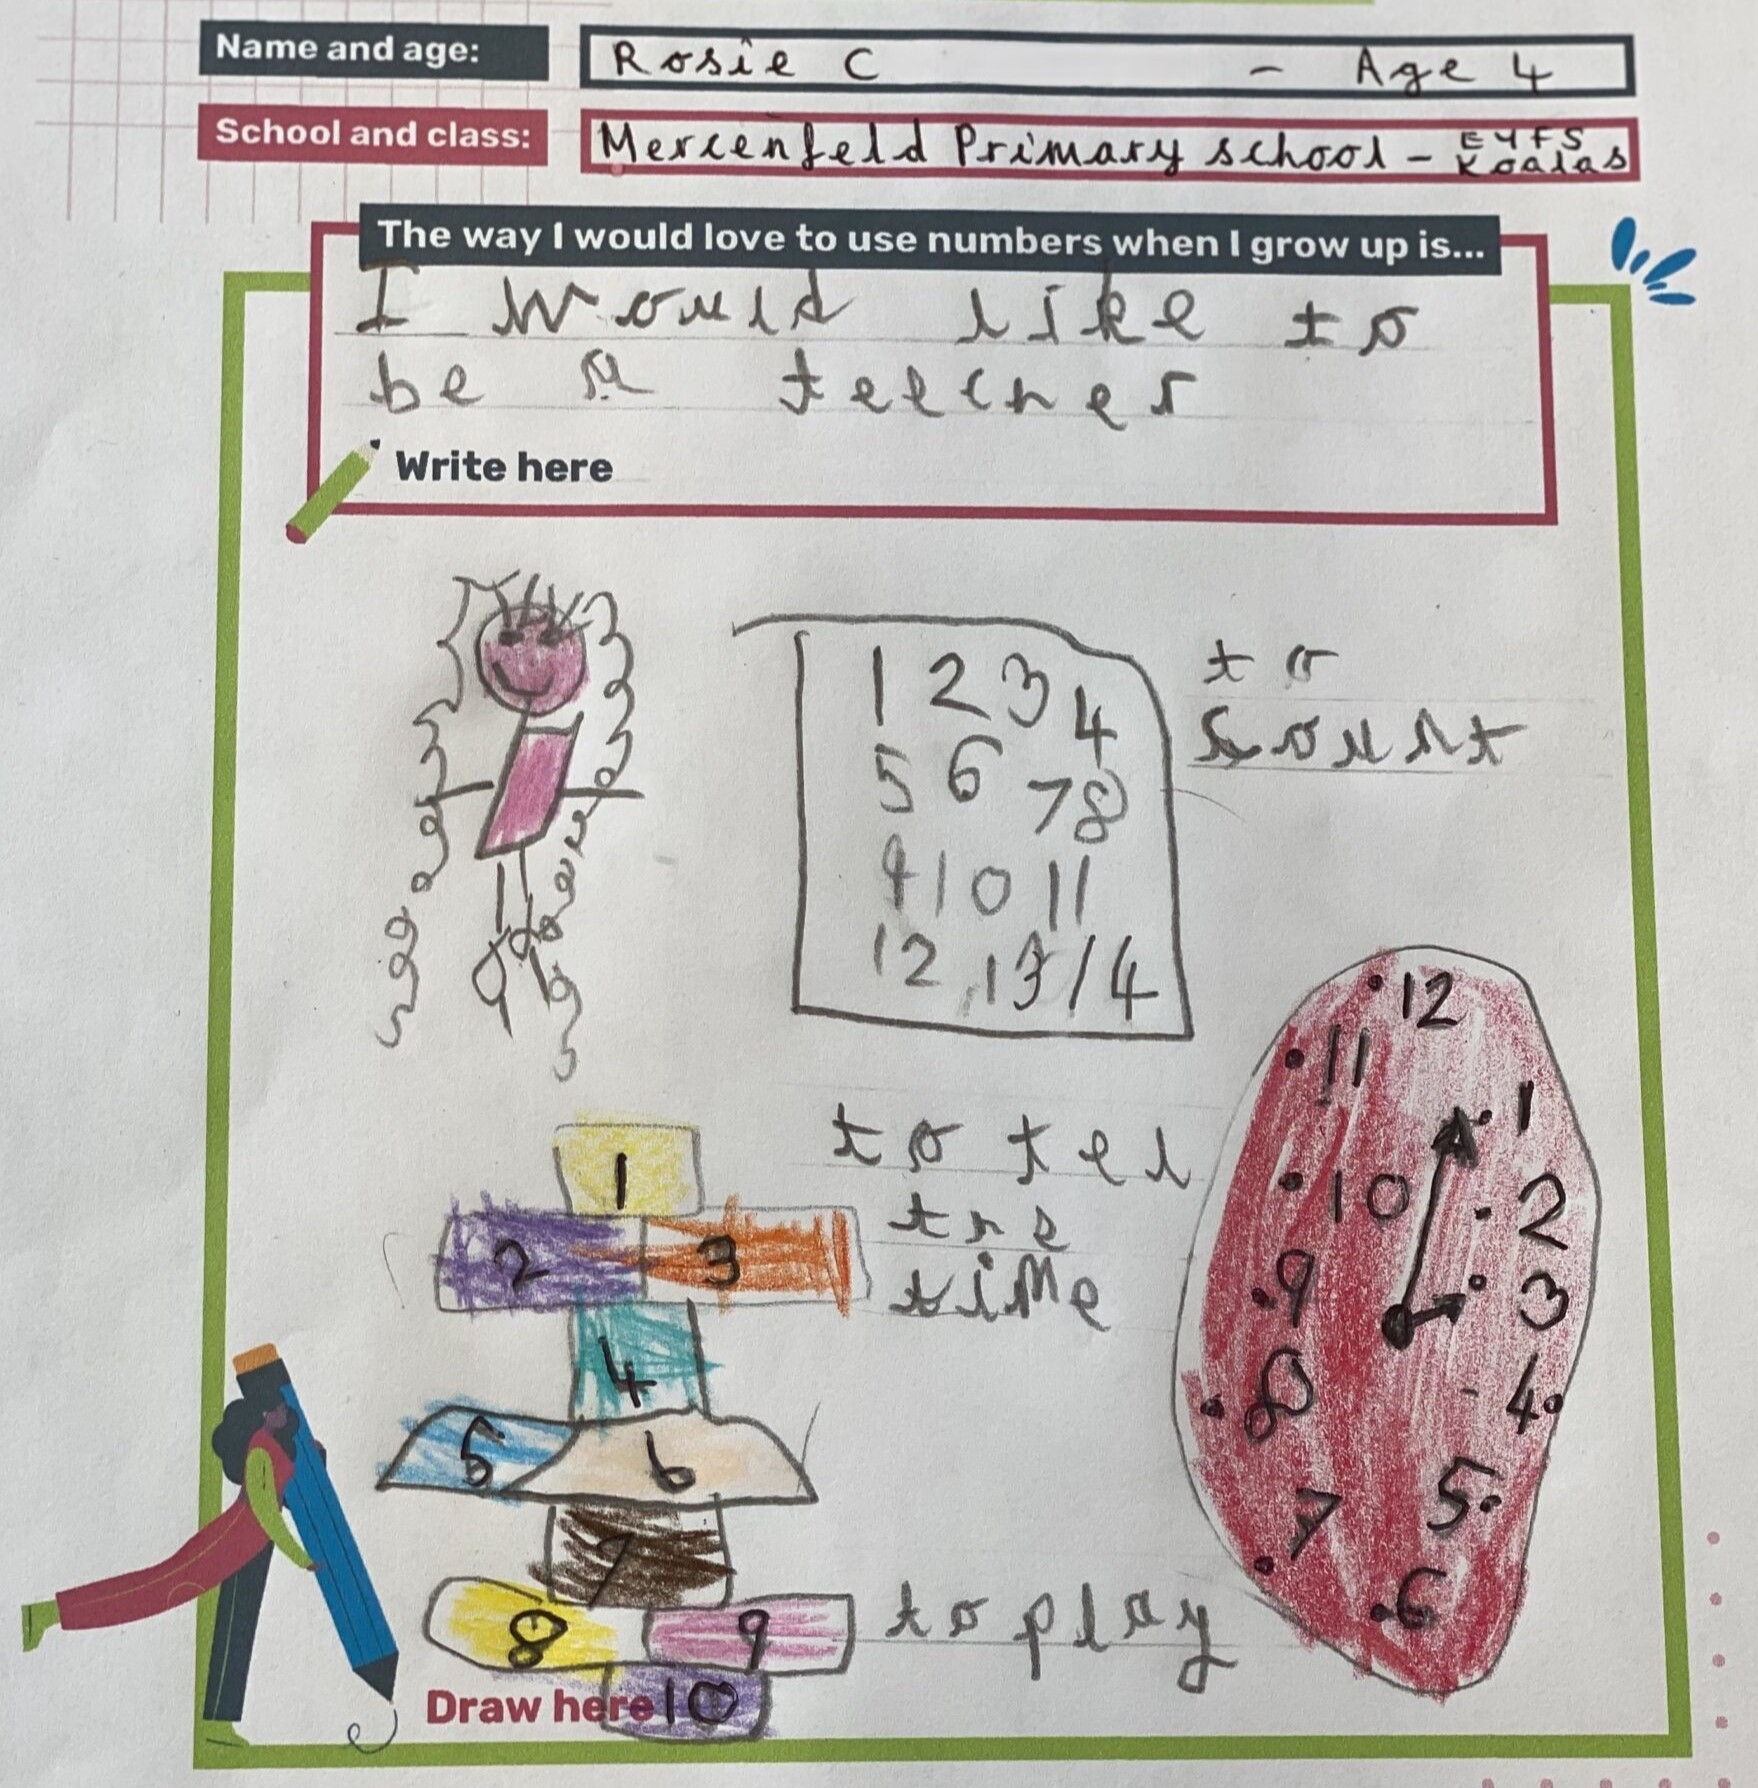 Name and age: Rosie C - Age 4
School and class: Mercenfeld Primary school - EYFS Koalas
The way I would love to use numbers when I grow up is...
I would like to
be a teecher
Write here
1 2 3 4
5 6 7 8
9 10 11
12, 13 14
to
count
12
11
1
10
2
9
3
8
4
7
5
6
to tel
the
time
1
2 3
4
5 6
7
8 9
10
to play
Draw here